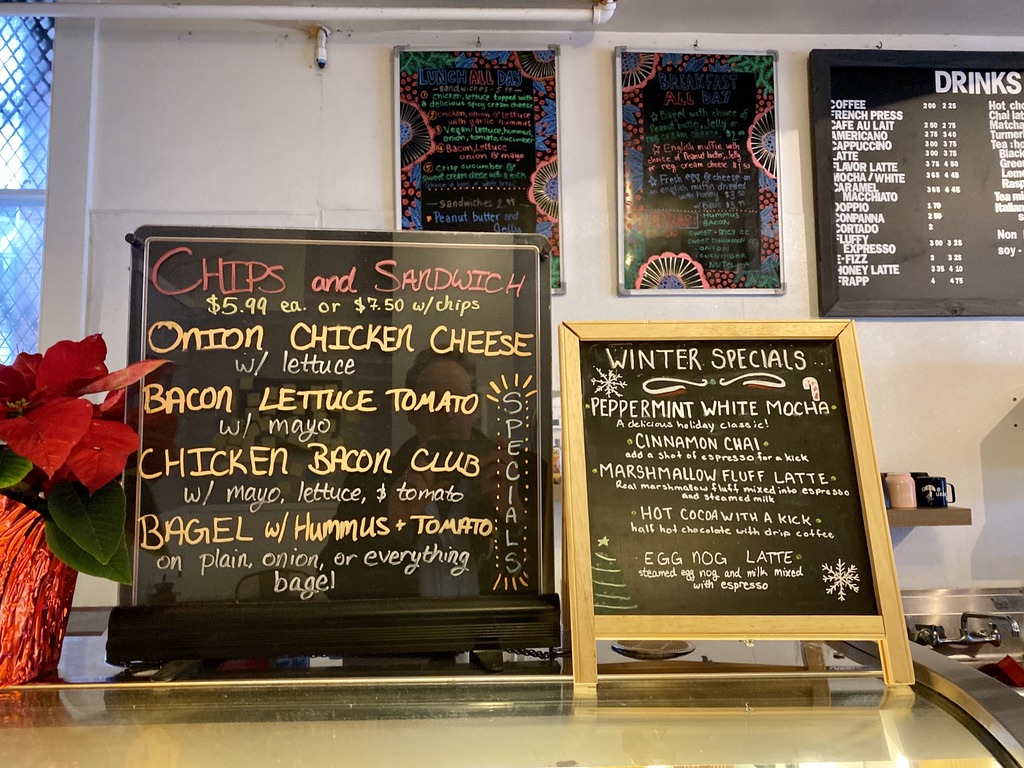 LUNCH ALL DAY
SANDWICHES - 5.99
① Chicken, lettuce topped with
a delicious spicy cream cheese
② Chicken, onion & lettuce
with garlic hummus
③ Vegan: lettuce, hummus,
onion, tomato, cucumber
④ Bacon, Lettuce
onion & mayo
⑤ Crisp cucumber &
sweet cream cheese with a kick
— sandwiches 2.99
Peanut butter and
Jelly
BREAKFAST
ALL DAY
☆ Bagel with choice of
Peanut butter, Jelly or
☆ English muffin with
choice of Peanut butter, Jelly
or reg cream cheese
☆ Fresh egg & cheese on
an english muffin drizzled
with honey
HUMMUS
BACON
ONION
DRINKS
COFFEE 2 00 2 25
FRENCH PRESS
CAFE AU LAIT 2 50 2 75
AMERICANO 2 75 3 40
CAPPUCCINO 3 00 3 75
LATTE 3 00 3 75
FLAVOR LATTE 3 75 4 50
MOCHA / WHITE 3 65 4 45
CARAMEL 3 65 4 45
MACCHIATO
DOPPIO 1 70
CONPANNA 2 50
CORTADO 2
FLUFFY
EXPRESSO 3 00 3 25
E-FIZZ 3 3 25
HONEY LATTE 3 35 4 10
FRAPP 4 4 75
Hot cho
Chai lat
Matcha
Turmer
Tea : ho
Black
Gree
Lem
Rasp
Tea mi
Italian
s
Non
soy -
CHIPS and SANDWICH
$5.99 ea. or $7.50 w/chips
ONION CHICKEN CHEESE
w/ lettuce
BACON LETTUCE TOMATO
w/ mayo
CHICKEN BACON CLUB
w/ mayo, lettuce, $ tomato
BAGEL w/ HUMMUS + TOMATO
on plain, onion, or everything
bagel
SPECIALS
WINTER SPECIALS
PEPPERMINT WHITE MOCHA
A delicious holiday classic!
CINNAMON CHAI
add a shot of espresso for a kick
MARSHMALLOW FLUFF LATTE
Real marshmallow fluff mixed into espresso
and steamed milk
HOT COCOA WITH A KICK
half hot chocolate with drip coffee
EGG NOG LATTE
steamed egg nog and milk mixed
with espresso